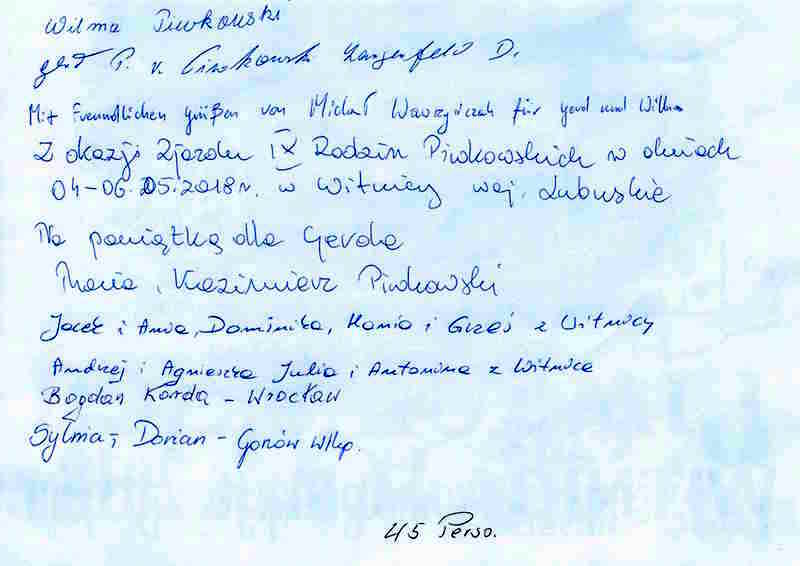 Wilma Piwkowski
gerd P. v. Piwkowski Langenfeld D.
Mit Freundlichen Grüßen von Michał Wawrzyńczak für Gerd und Wilma
Z okazji Zjazdu IX Rodzin Piwkowskich w dniach
04-06.05.2018r. w Witnicy woj. Lubuskie
Na pamiątkę dla Gerda
Maria i Kazimierz Piwkowski
Jacek i Anna, Dominika, Hania i Grześ z Witnicy
Andrzej i Agnieszka Julia i Antonina z Witnica
Bogdan Korda - Wrocław
Sylwia i Dorian - Gorzów Wlkp.
45 Perso.